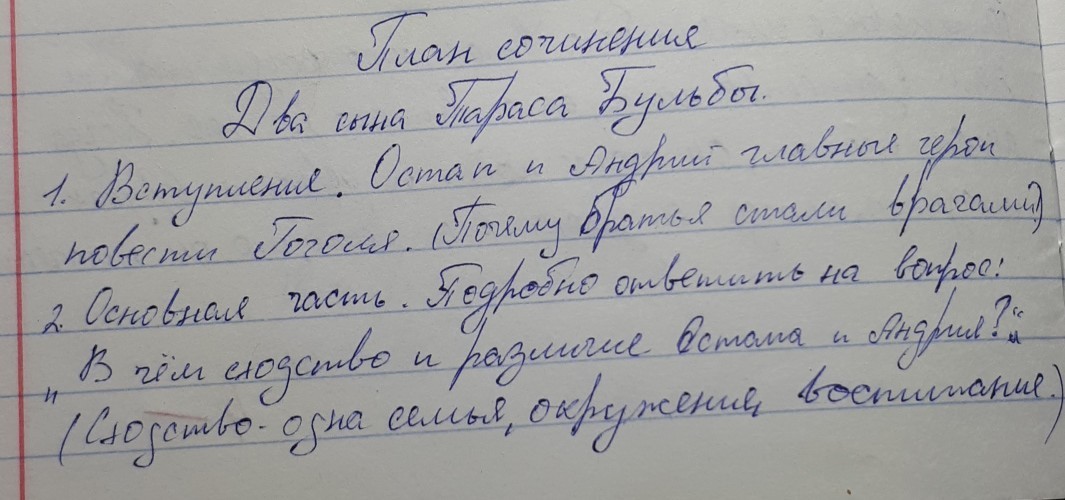 План сочинения
Два сына Тараса Бульбы.
1. Вступление. Остап и Андрий главные герои
повести Гоголя. (Почему братья стали врагами?)
2. Основная часть. Подробно ответить на вопрос:
„В чём сходство и различие Остапа и Андрия?“
(Сходство - одна семья, окружение, воспитание.)